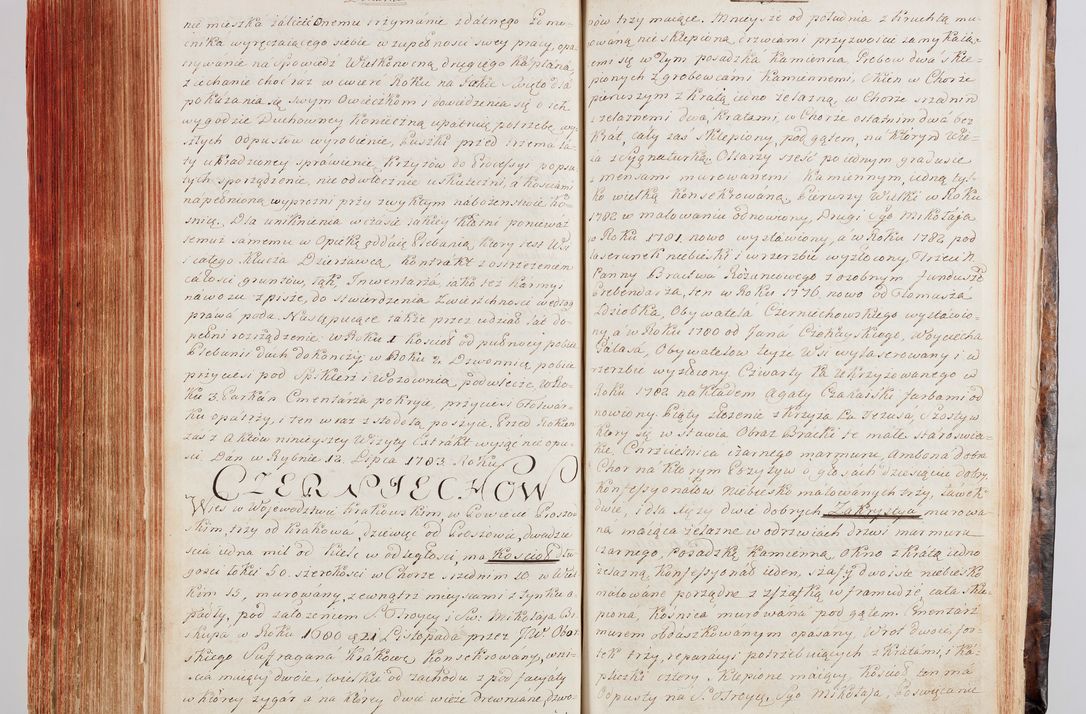 nie mieszka zaleci Onemu trzymanie zdatnego Pomo-
cnika wyręczaiącego siebie w zupełnosci swey pracy, opa-
trywanie na Spowiedź Wielkonocną drugiego Kapłana,
ziechanie choć raz w cwierć Roku na jakie Swięto dla
pokazania się swym Owieczkom i dowiedzenia się o ich
wygodzie Duchowney Konieczną upatruie potrzebę wy-
szłych Odpustów wyrobienie, Puszki przed trzema la-
ty ukradzioney sprawienie Krzyżów do Processyi popsu-
tych sporządzenie, nie odwłocznie uskuteczni, a Kosciami
napełnioną wyprozni przy zwykłym nabożenstwie Ko-
snicę. Dla uniknienia wczasie jakiey Kłótni ponieważ
temuż samemu w Opiekę oddaie Plebanią, ktory jest Wsi
i całego Klucza Dzierzawcą kontrakt z ostrzezeniem
całosci gruntow, łąk, Inwentarza, jako też karmy i
nawozu zpisze, do stwierdzenia Zwierzchnosci według
prawa poda. Następuiące także przez udział lat do-
pełni rozrządzenie w Roku 1 Kosciół od pułnocy pobiie
Plebanii dach dokonczy, w Roku 2. Dzwonnią pobiie
przyciesi pod Spiklerz i Wozownią podwlecze, w Ro-
ku 3. Parkan Cmentarza pokryie, przyciesi Folwar-
ku opatrzy, i ten wraz z Stodołą poszyie, Przed Rokiem
zas z Aktow ninieyszey Wizyty Extrakt wyiąć nie opu-
sci Dan w Rybnie 12. Lipca 1783. Roku.
CZERNIECHOW
Wies w Woiewodztwie Krakowskim, w Powiecie Proszo-
skim, trzy od Krakowa, dziewięć od Proszowa, dwadzie-
scia iedna mil od Kielc w odległosci, ma Kosciół dłu-
gosci łokci 50. szerokosci w Chorze srednim 20. w Wiel-
kim 15, murowany, zewnątrz mieyscami z tynku o-
padły, pod założeniem S. Troycy i Sw: Mikołaja Bi-
skupa w Roku 1680 d 21 Listopada przez JW. Obor-
skiego Suffragana Krakowo Konsekrowany, wni-
scia maiący dwoie, wielkie od zachodu z pod facyaty
w ktorey zygar a na ktorey dwie wieże drewniane, dzwo-
now trzy maiące. Mnieysze od południa z Kruchtą mu-
rowaną nie sklepioną, drzwiami przyzwoicie zamykaią-
cemi się, w tym posadzka Kamienna, Grobow dwa skle-
pionych z grobowcami Kamiennemi, Okien w Chorze
pierwszym z Kratą iedno żelazną, w Chorze srednim
z zelaznemi dwa, Kratami, w Chorze ostatnim dwa bez
Krat, cały zaś sklepiony, pod gątem, na ktorym Wie-
ża z Sygnaturką. Ołtarzy sześć po iednym gradusie
z mensami murowanemi Kamiennym, iedną tyl-
ko wielką Konsekrowaną. Pierwszy Wielki w Roku
1782 w malowaniu odnowiony, Drugi Sgo Mikołaja
w Roku 1781. nowo wystawiony, a w Roku 1782 pod
laserunek niebieski i wrzezbie wyzłocony, Trzeci N.
Panny Bractwa Rożancowego z osobnym funduszem
Prebendarza, ten w Roku 1776. nowo od Tomasza
Dziobka, Obywatela Czerniechowskiego wystawio-
ny, a w Roku 1780 od Jana Czekayskiego, Woyciecha
Gałasa, Obywatelow teyze Wsi wylaserowany i w
rzezbie wyzłocony Czwarty Pa Ukrzyżowanego w
Roku 1782 nakładem Agaty Czakaiski farbami od-
nowiony. Piąty Złożenie z Krzyża Pa Jezusa, Szosty w
ktory się wstawia Obraz Bracki te małe staroswiec-
kie, Chrzcielnica czarnego marmuru, Ambona dobra
Chor na ktorym Pozytyw o głosach dziesięciu dobry,
Konfessyonałow niebiesko malowanych trzy, ławek
dwie, i dla Mszy dwie dobrych. Zakrystya murowa-
na maiąca żelazne w odrzwiach drzwi marmuru
czarnego, posadzkę Kamienną okno z Kratą iedno
żelazną, Konfessyonał ieden, szafy dwoiste niebiesko
malowane porządne z szafką w framudze, cała skle-
piona, Kosnica murowana pod gątem. Cmentarz
murem obdaszkowanym opasany, Wrot dwoie, for-
tek trzy, reparacyi potrzebuiących z Kratami, i Ka-
pliczki cztery sklepione maiący, Kosciół ten ma
Odpusty na S. Troycę, Sgo Mikołaja, Poswięcanie